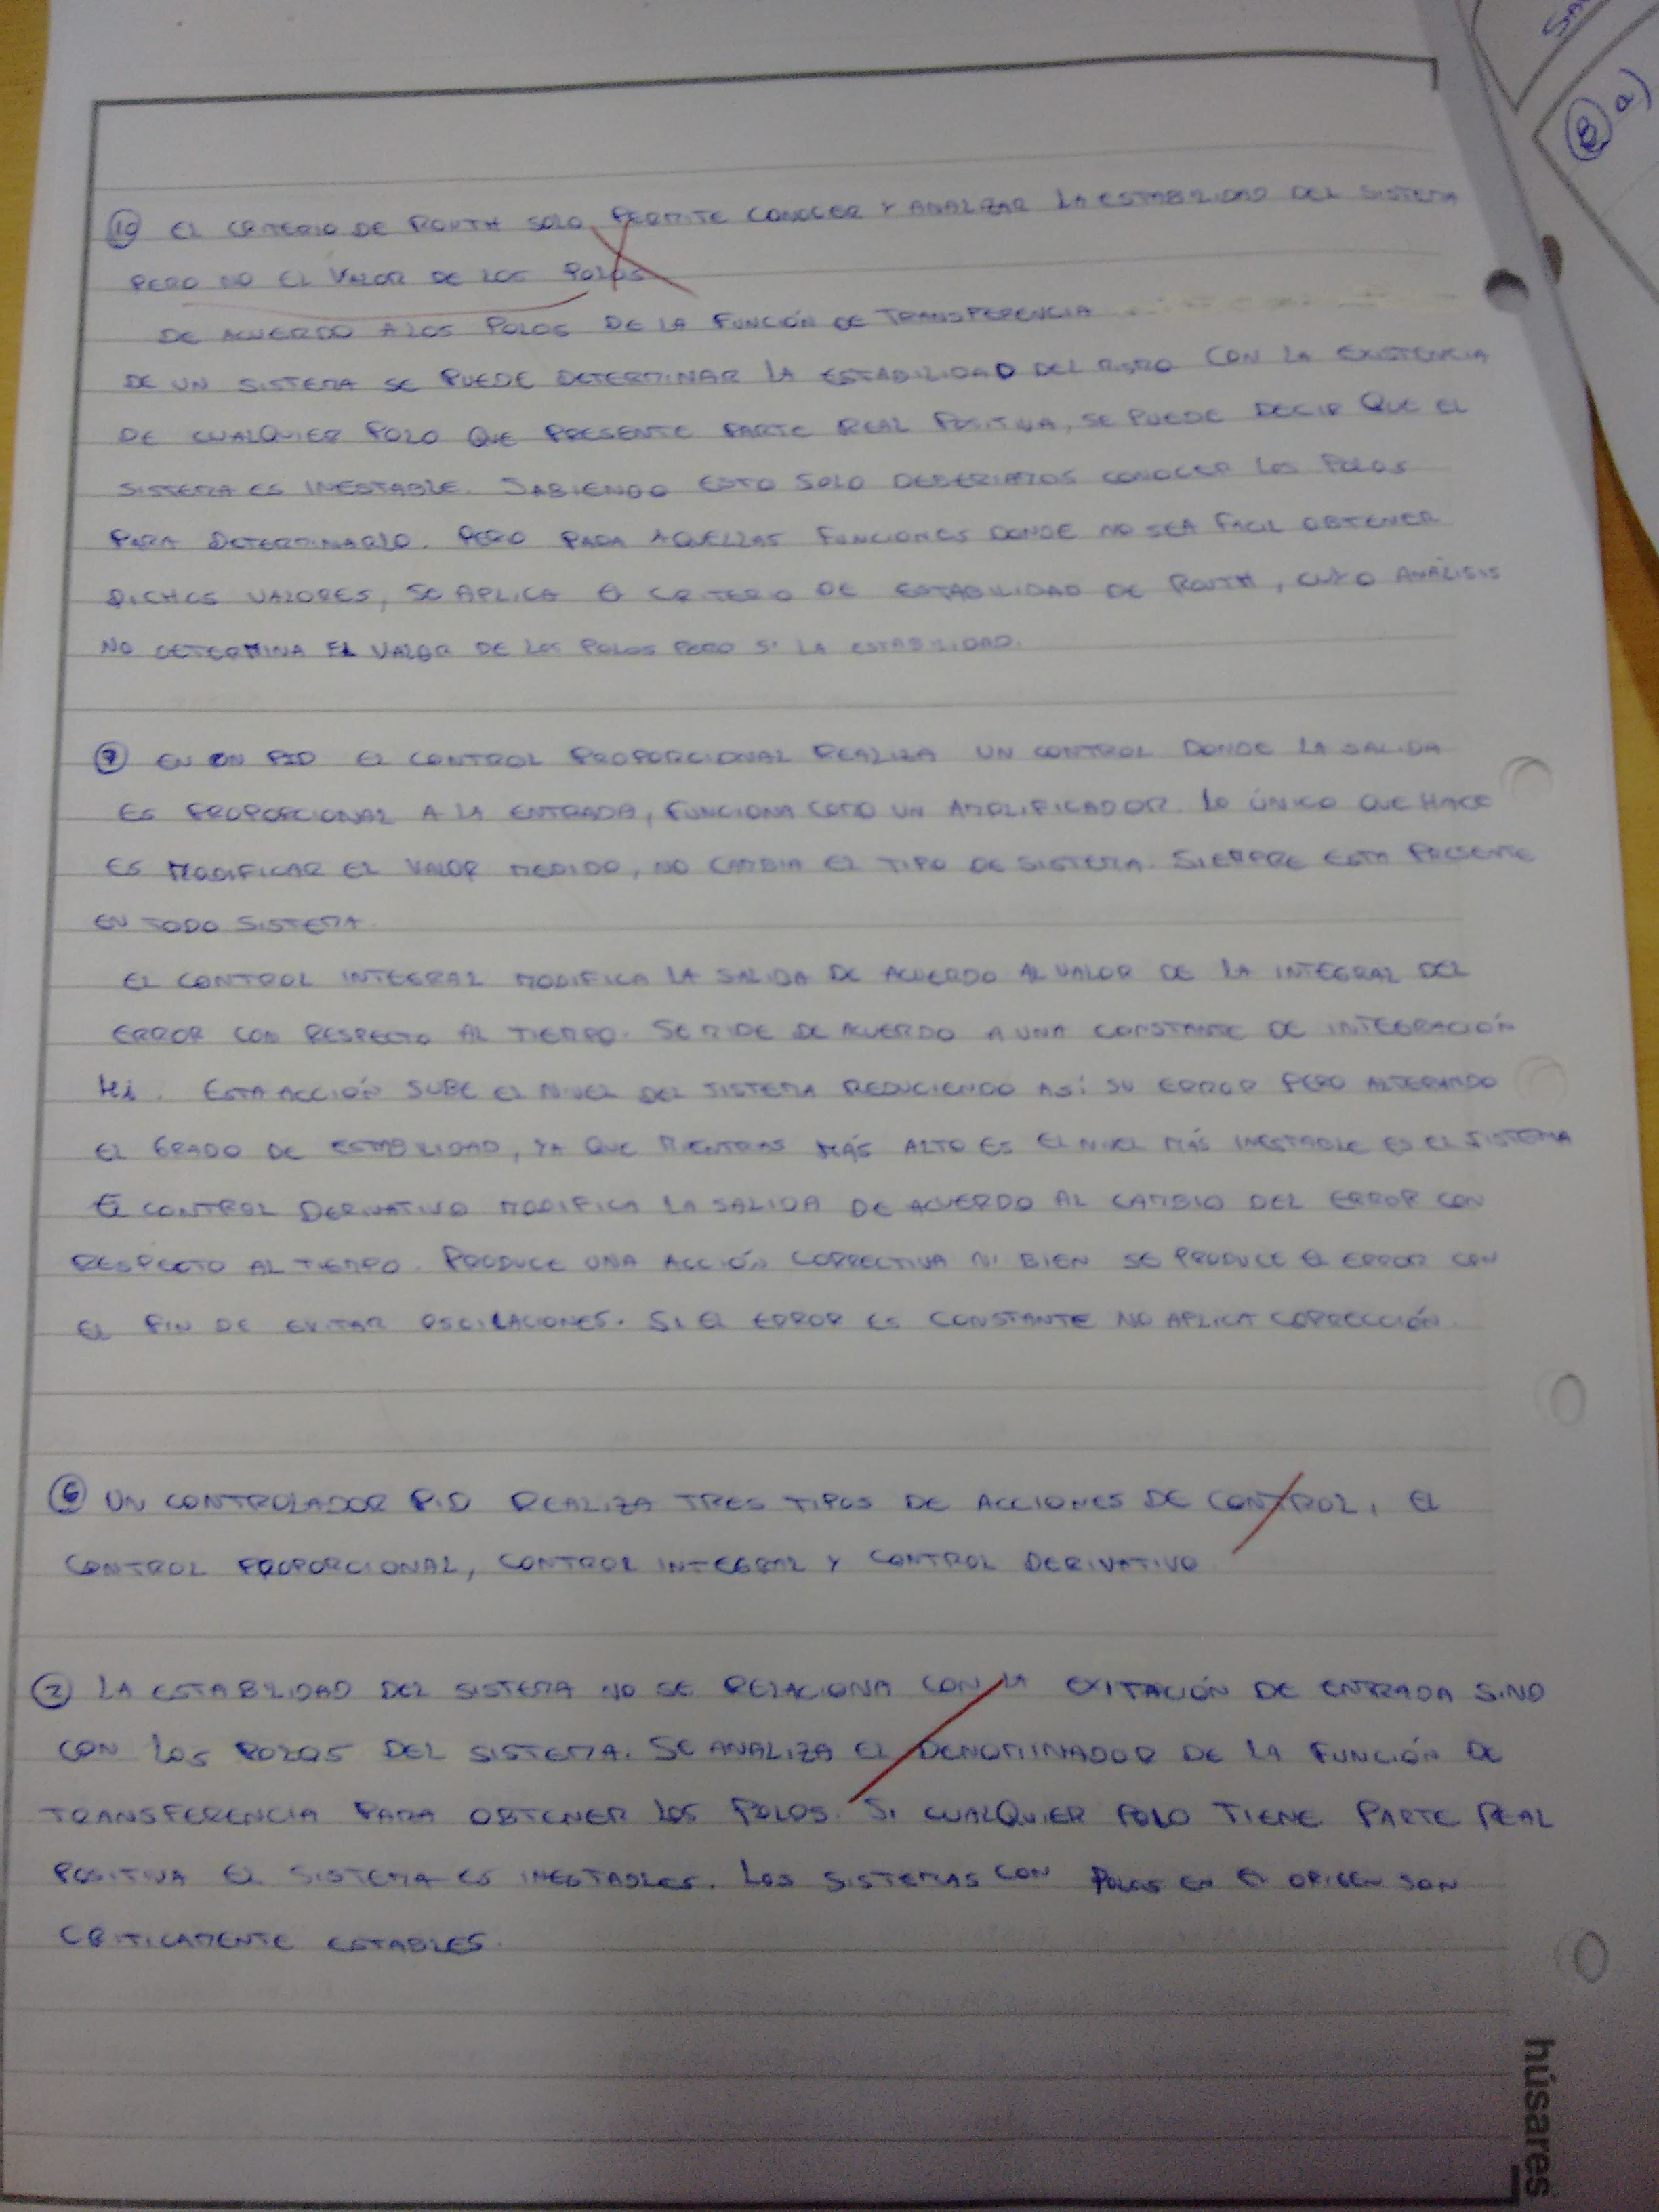 10 EL CRITERIO DE ROUTH SOLO PERMITE CONOCER Y ANALIZAR LA ESTABILIDAD DEL SISTEMA
PERO NO EL VALOR DE LOS POLOS
DE ACUERDO A LOS POLOS DE LA FUNCIÓN DE TRANSFERENCIA
DE UN SISTEMA SE PUEDE DETERMINAR LA ESTABILIDAD DEL CON LA EXISTENCIA
DE CUALQUIER POLO QUE PRESENTE PARTE REAL POSITIVA, SE PUEDE DECIR QUE EL
SISTEMA ES INESTABLE. SABIENDO ESTO SOLO DEBERIAMOS CONOCER LOS POLOS
PARA DETERMINARLO. PERO PARA AQUELLAS FUNCIONES DONDE NO SEA FACIL OBTENER
DICHOS VALORES, SE APLICA EL CRITERIO DE ESTABILIDAD DE ROUTH, CUYO ANÁLISIS
NO DETERMINA EL VALOR DE LOS POLOS PERO SI LA ESTABILIDAD.
7 EN UN PID EL CONTROL PROPORCIONAL REALIZA UN CONTROL DONDE LA SALIDA
ES PROPORCIONAL A LA ENTRADA, FUNCIONA COMO UN AMPLIFICADOR. LO ÚNICO QUE HACE
ES MODIFICAR EL VALOR MEDIDO, NO CAMBIA EL TIPO DE SISTEMA. SIEMPRE ESTA PRESENTE
EN TODO SISTEMA.
EL CONTROL INTEGRAL MODIFICA LA SALIDA DE ACUERDO AL VALOR DE LA INTEGRAL DEL
ERROR CON RESPECTO AL TIEMPO. SE MIDE DE ACUERDO A UNA CONSTANTE DE INTEGRACIÓN
Ki. ESTA ACCIÓN SUBE EL NIVEL DEL SISTEMA REDUCIENDO ASÍ SU ERROR PERO ALTERANDO
EL GRADO DE ESTABILIDAD, YA QUE MIENTRAS MÁS ALTO ES EL NIVEL MÁS INESTABLE ES EL SISTEMA
EL CONTROL DERIVATIVO MODIFICA LA SALIDA DE ACUERDO AL CAMBIO DEL ERROR CON
RESPECTO AL TIEMPO. PRODUCE UNA ACCIÓN CORRECTIVA NI BIEN SE PRODUCE EL ERROR CON
EL FIN DE EVITAR OSCILACIONES. SI EL ERROR ES CONSTANTE NO APLICA CORRECCIÓN.
6 UN CONTROLADOR PID REALIZA TRES TIPOS DE ACCIONES DE CONTROL, EL
CONTROL PROPORCIONAL, CONTROL INTEGRAL Y CONTROL DERIVATIVO
2 LA ESTABILIDAD DEL SISTEMA NO SE RELACIONA CON LA EXITACIÓN DE ENTRADA SINO
CON LOS POLOS DEL SISTEMA. SE ANALIZA EL DENOMINADOR DE LA FUNCIÓN DE
TRANSFERENCIA PARA OBTENER LOS POLOS. SI CUALQUIER POLO TIENE PARTE REAL
POSITIVA EL SISTEMA ES INESTABLES. LOS SISTEMAS CON POLOS EN EL ORIGEN SON
CRITICAMENTE ESTABLES.
húsares
8 a)